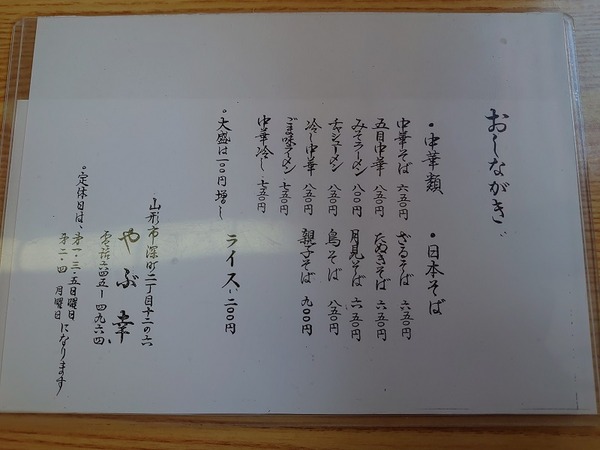 おしながき
・中華類
中華そば 六五〇円
五目中華 八五〇円
みそラーメン 八〇〇円
チャシューメン 八五〇円
冷し中華 八五〇円
ごま味ラーメン 七五〇円
中華冷し 七五〇円
・日本そば
ざるそば 六五〇円
たぬきそば 六五〇円
月見そば 六五〇円
鳥そば 八五〇円
親子そば 九〇〇円
・大盛は一〇〇円増し
ライス 二〇〇円
山形市深町二丁目十二の六
やぶ幸
電話六四五ー四九六四
・定休日は、第一・三・五日曜日
第二・四 月曜日になります